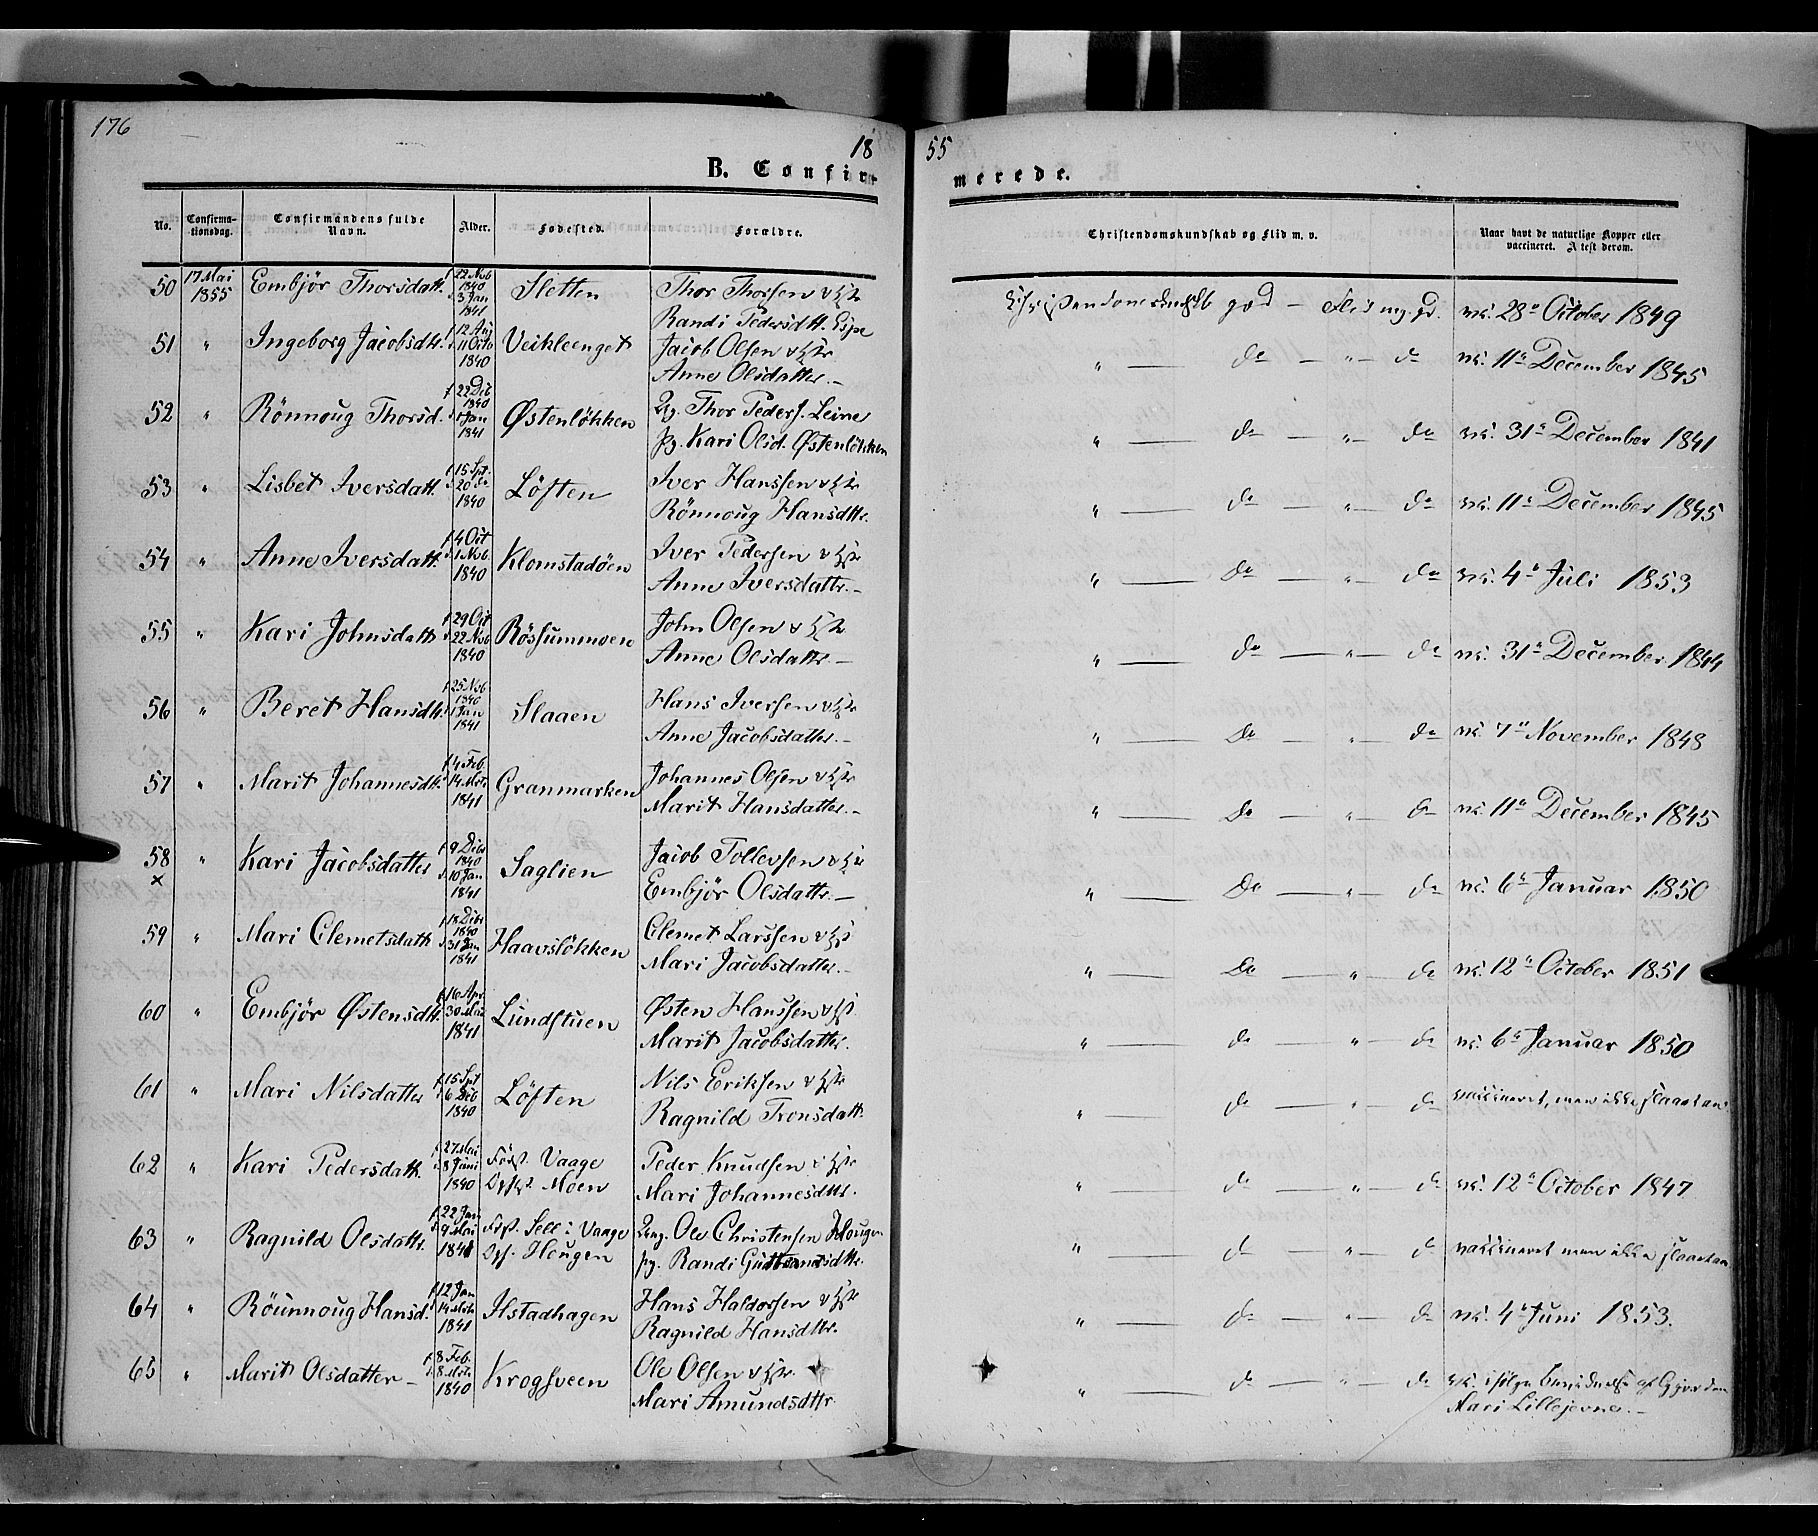 176
18 55
B. Confir merede.
No. Confirma-tionsdag. Confirmandens fulde Navn. Alder. Fødested. Forældre. Christendomskundskab og Flid m. v. Naar havt de naturlige Kopper eller vaccineret. Atest derom.
50 17 Mai 1855 Embjör Thorsdatt. f 22 Nvb 1840 d 3 Jan 1841 Sletten Thor Thorsen & Hst Randi Pedersdtt. Espe god — Flid mg. gd. vc. 28de October 1849
51 " Ingeborg Jacobsdtr. f 12 Aug d 11 Octb 1840 Veikleenget Jacob Olsen & Hst Anne Olsdatter. " — do — " — do vc. 11te December 1845
52 " Rönnoug Thorsd. f 22 Dcb 1840 d 1 Jan 1841 Østenløkken Ug. Thor Peders. Leine pg. Kari Olsd. Østenløkken " — do — " — do vc. 31te December 1841
53 " Lisbet Iversdatt. f 15 Spt. d 20 do 1840 Löften Iver Hanssen & Hst Rönnoug Hansdtr. " — do — " — do vc. 11te December 1845
54 " Anne Iversdatt. f 4 Oct d 1 Nvb. 1840 Klomstadöen Iver Pedersen & Hst Anne Iversdatter. " — do — " — do vc. 4de Juli 1853
55 " Kari Johnsdatt f 29 Oct d 22 Nvb 1840 Rössummoen John Olsen & Hst Anne Olsdatter — " — do — " — do vc. 31te December 1844
56 " Beret Hansdtr. f 25 Nvb 1840 d 1 Jan 1841 Slaaen Hans Iversen & Hst Anne Jacobsdatter. — " — do — " — do vc. 7de November 1848
57 " Marit Johannesdtr. f 4 Feb. d 14 Mts 1841 Granmarken Johannes Olsen & Hst Marit Hansdatter. — " — do — " — do vc. 11te December 1845
58 x " Kari Jacobsdatter f 9 Dcbr 1840 d 10 Jan 1841 Saglien Jacob Tollevsen & Hst Embjör Olsdatter. — " — do — " — do vc. 6te Januar 1850
59 " Mari Clemetsdatt f 18 Dcbr 1840 d 31 Jan 1841 Haavslökken Clemet Larssen & Hst Mari Jacobsdatter. — " — do — " — do vc. 12te October 1851
60 " Embjör Østensdtr. f 16 Apr. d 30 Mai 1841 Lundstuen Østen Hanssen & Hst Marit Jacobsdatter. " — do — " — do vc. 6te Januar 1850
61 " Mari Nilsdatter f 15 Spt d 6 Dcb 1840 Löften Nils Eriksen & Hst Ragnild Tronsdatt. " — do — " — do vaccineret, men ikke slaaet an
62 " Kari Pedersdatt. f 27 Mai d 8 Juni 1840 Födt. Vaage Opf. Moen Peder Knudsen & Hst Mari Johannesdtr. " — do — " — do vc. 12te October 1847
63 " Ragnild Olsdattr. f 22 Jan d 9 Mai 1841 Födt. Sell i Vaage Opf. Hougen Ung. Ole Christensen Hougen pg. Randi Guttormsdttr. " — do — " — do vaccineret men ikke slaaet an
64 " Röunnoug Hansd. f 12 Jan d 14 Mts 1841 Ilstadhagen Hans Haldorsen & Hst Ragnild Hansdtter. " — do — " — do vc. 4de Juni 1853.
65 " Marit Olsdatter — f 8 Feb. d 8 Mts 1840 Krogsveen Ole Olsen & Hst. Mari Amundsdttr " — do — " — do vc. ifölge af Mari Lillejevne. —